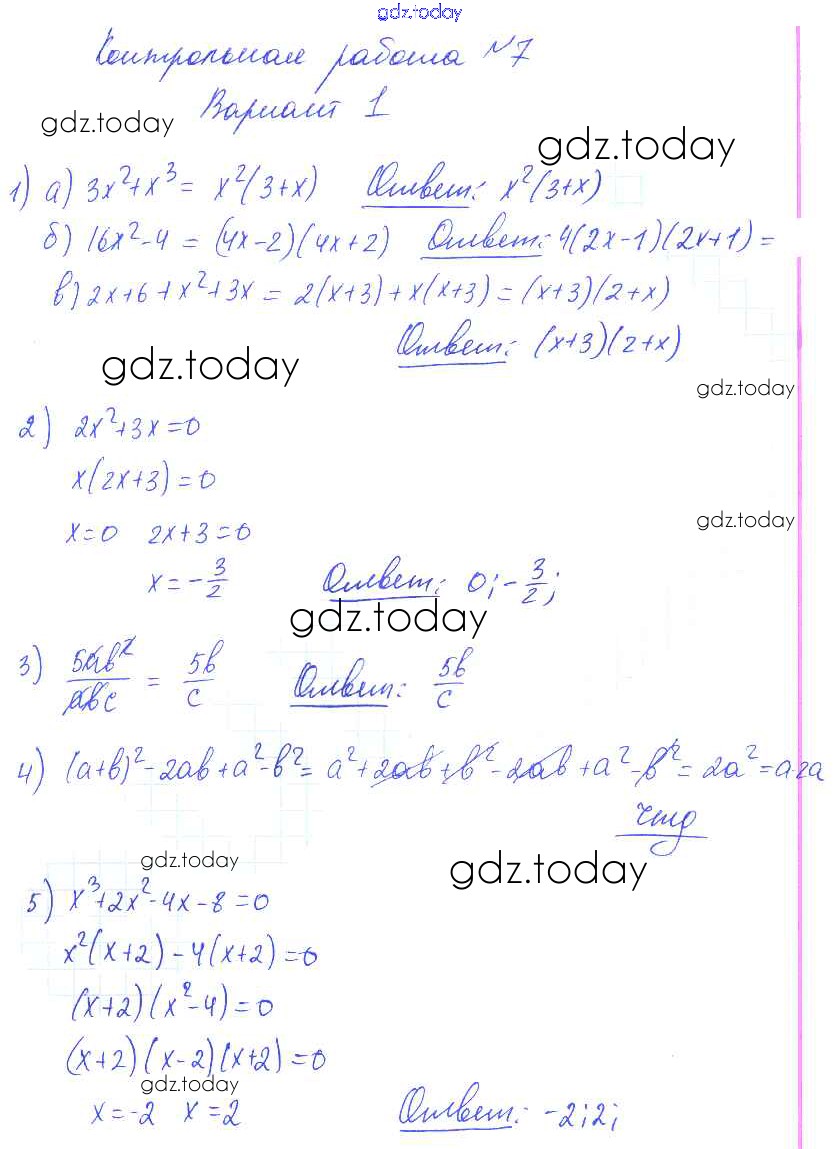 gdz.today
Контрольная работа №7
Вариант 1
gdz.today
gdz.today
1) а) 3x²+x³ = x²(3+x) Ответ: x²(3+x)
б) 16x²-4 = (4x-2)(4x+2) Ответ: 4(2x-1)(2x+1) =
в) 2x+6+x²+3x = 2(x+3)+x(x+3) = (x+3)(2+x)
Ответ: (x+3)(2+x)
gdz.today
gdz.today
2) 2x²+3x=0
x(2x+3)=0
gdz.today
x=0 2x+3=0
x=-3/2 Ответ: 0;-3/2;
gdz.today
3) 5ab²/abc = 5b/c Ответ: 5b/c
4) (a+b)²-2ab+a²-b² = a²+2ab+b²-2ab+a²-b² = 2a² = a·2a
чтд
gdz.today
gdz.today
5) x³+2x²-4x-8=0
x²(x+2)-4(x+2)=0
(x+2)(x²-4)=0
(x+2)(x-2)(x+2)=0
gdz.today
x=-2 x=2 Ответ: -2;2;